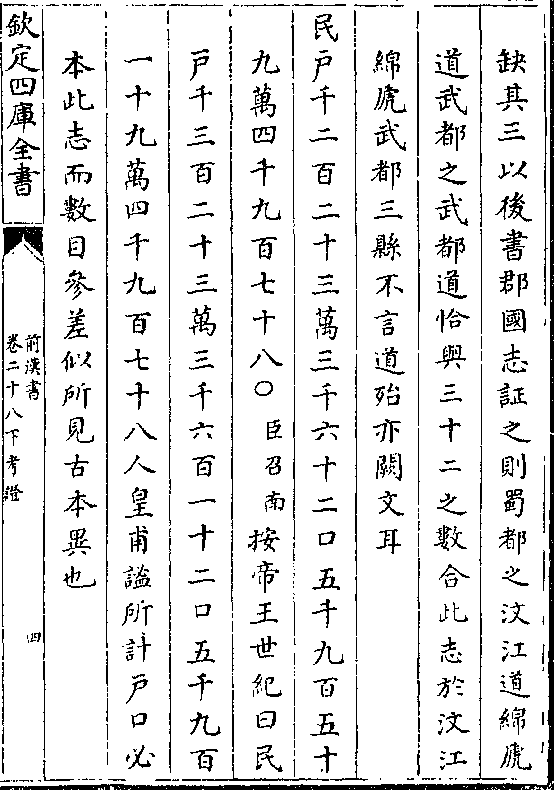 缺其三以後書郡國志証之則蜀都之汶江道綿虒
道武都之武都道恰與三十二之數合此志於汶江
綿虒武都三縣不言道殆亦闕文耳
民戸千二百二十三萬三千六十二口五千九百五十
九萬四千九百七十八〇臣召南按帝王世紀曰民
戸千三百二十三萬三千六百一十二口五千九百
一十九萬四千九百七十八人皇甫謐所計戸口必
本此志而數目參差似所見古本異也
欽定四庫全書
前漢書
卷二十八下考證
四